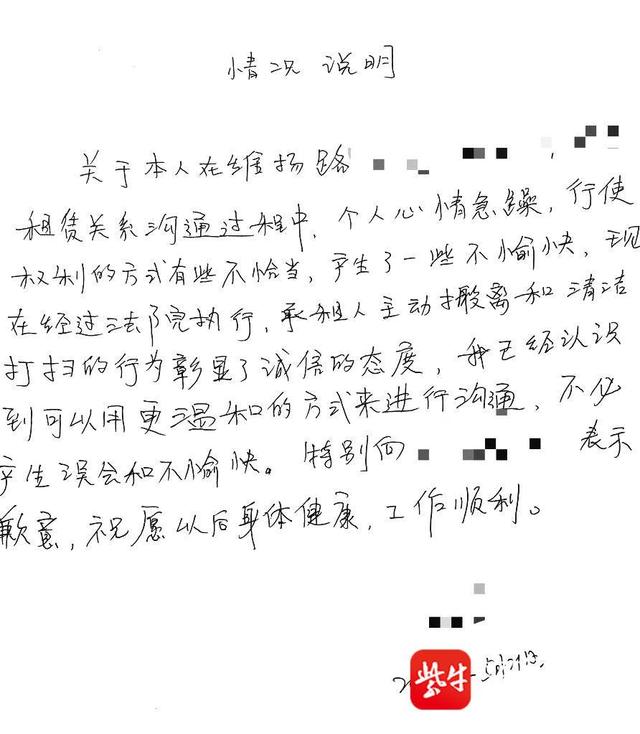 情况说明
关于本人在维扬路
租赁关系沟通过程中，个人心情急躁，行使
权利的方式有些不恰当，产生了一些不愉快，现
在经过法院执行，承租人主动搬离和清洁
打扫的行为彰显了诚信的态度，我已经认识
到可以用更温和的方式来进行沟通，不必
产生误会和不愉快。特别向 表示
歉意，祝愿以后身体健康，工作顺利。
紫牛